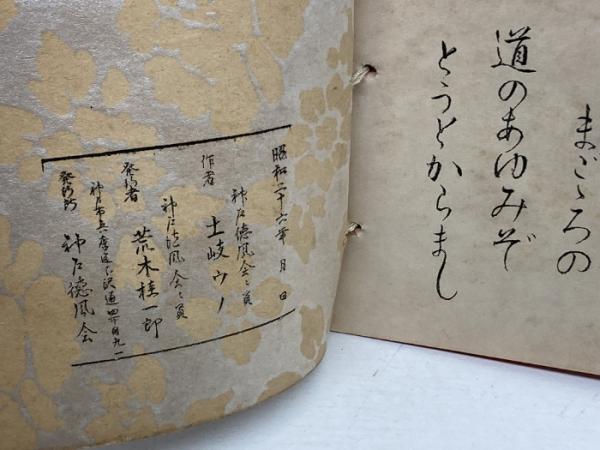 まごゝろの
道のあゆみぞ
とうとからまし
昭和二十六年 月 日
神戸徳風会々員
作者 土岐ウノ
神戸徳風会々員
発行者 荒木桂一郎
神戸市兵庫区下沢通四丁目九一
発行所 神戸徳風会